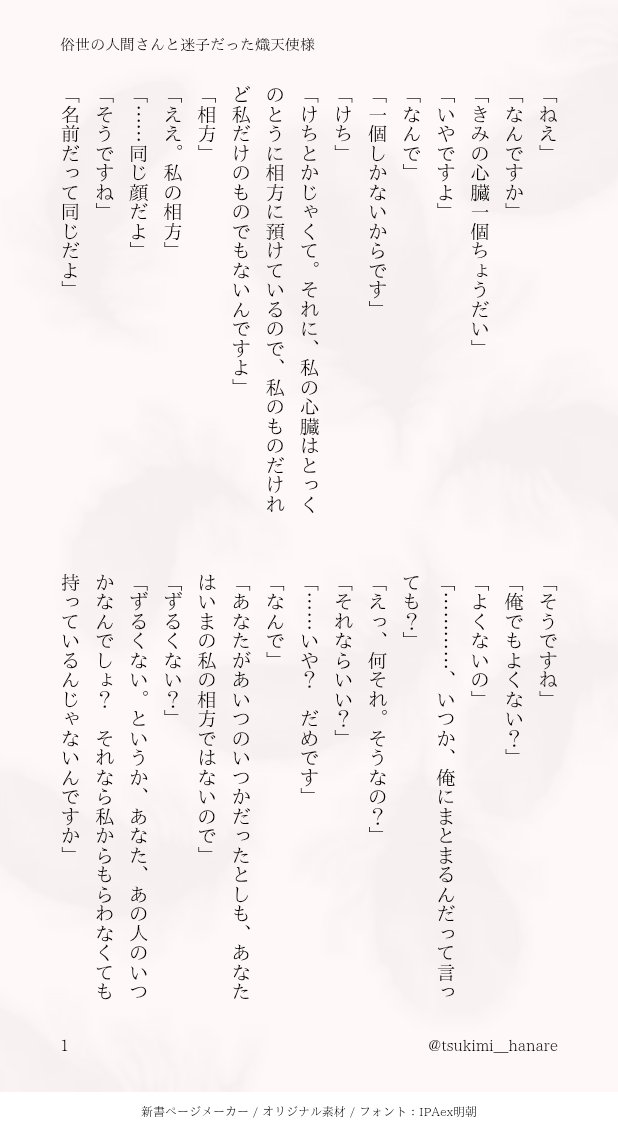 俗世の人間さんと迷子だった熾天使様
「ねえ」
「なんですか」
「きみの心臓一個ちょうだい」
「いやですよ」
「なんで」
「一個しかないからです」
「けち」
「けちとかじゃくて。それに、私の心臓はとっく
のとうに相方に預けているので、私のものだけれ
ど私だけのものでもないんですよ」
「相方」
「ええ。私の相方」
「……同じ顔だよ」
「そうですね」
「名前だって同じだよ」
「そうですね」
「俺でもよくない？」
「よくないの」
「…………、いつか、俺にまとまるんだって言っ
ても？」
「えっ、何それ。そうなの？」
「それならいい？」
「……いや？　だめです」
「なんで」
「あなたがあいつのいつかだったとしも、あなた
はいまの私の相方ではないので」
「ずるくない？」
「ずるくない。というか、あなた、あの人のいつ
かなんでしょ？　それなら私からもらわなくても
持っているんじゃないんですか」
1
@tsukimi__hanare
新書ページメーカー / オリジナル素材 / フォント：IPAex明朝